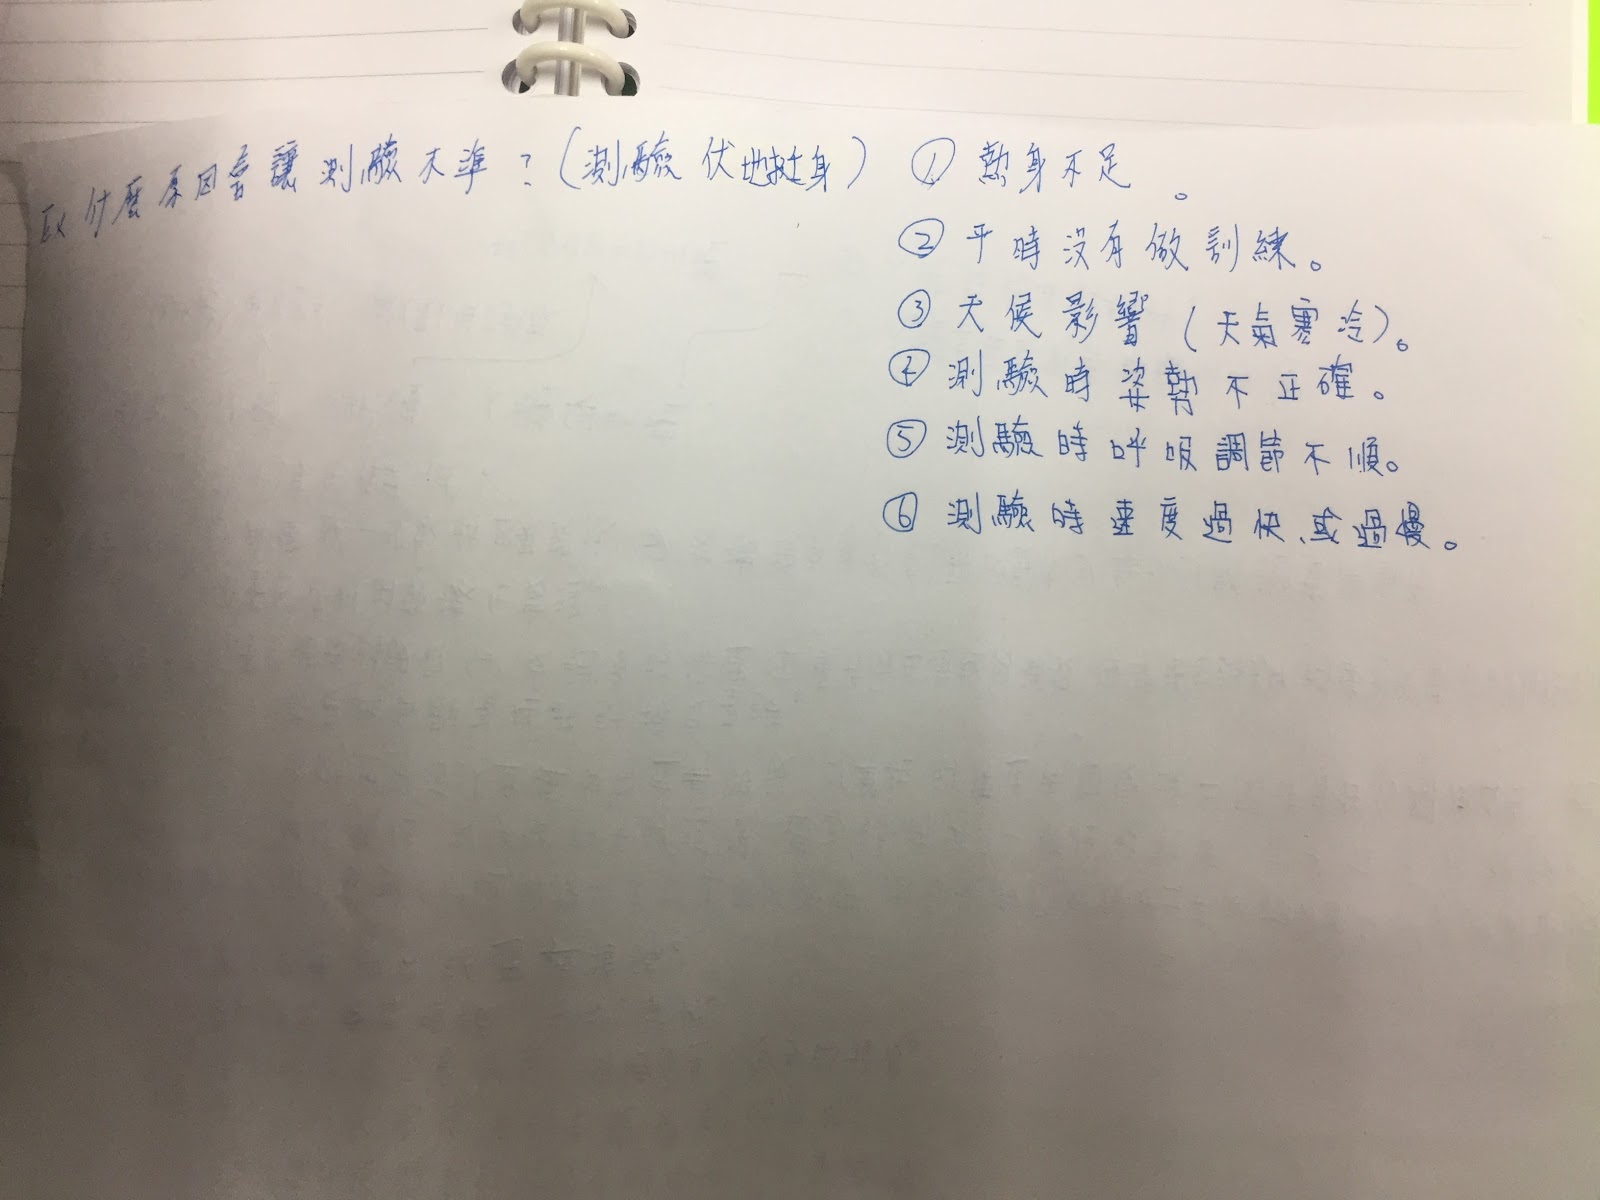 Ex 什麼原因會讓測驗不準?(測驗伏地挺身) ① 熱身不足。
② 平時沒有做訓練。
③ 天侯影響(天氣寒冷)。
④ 測驗時姿勢不正確。
⑤ 測驗時呼吸調節不順。
⑥ 測驗時速度過快、或過慢。